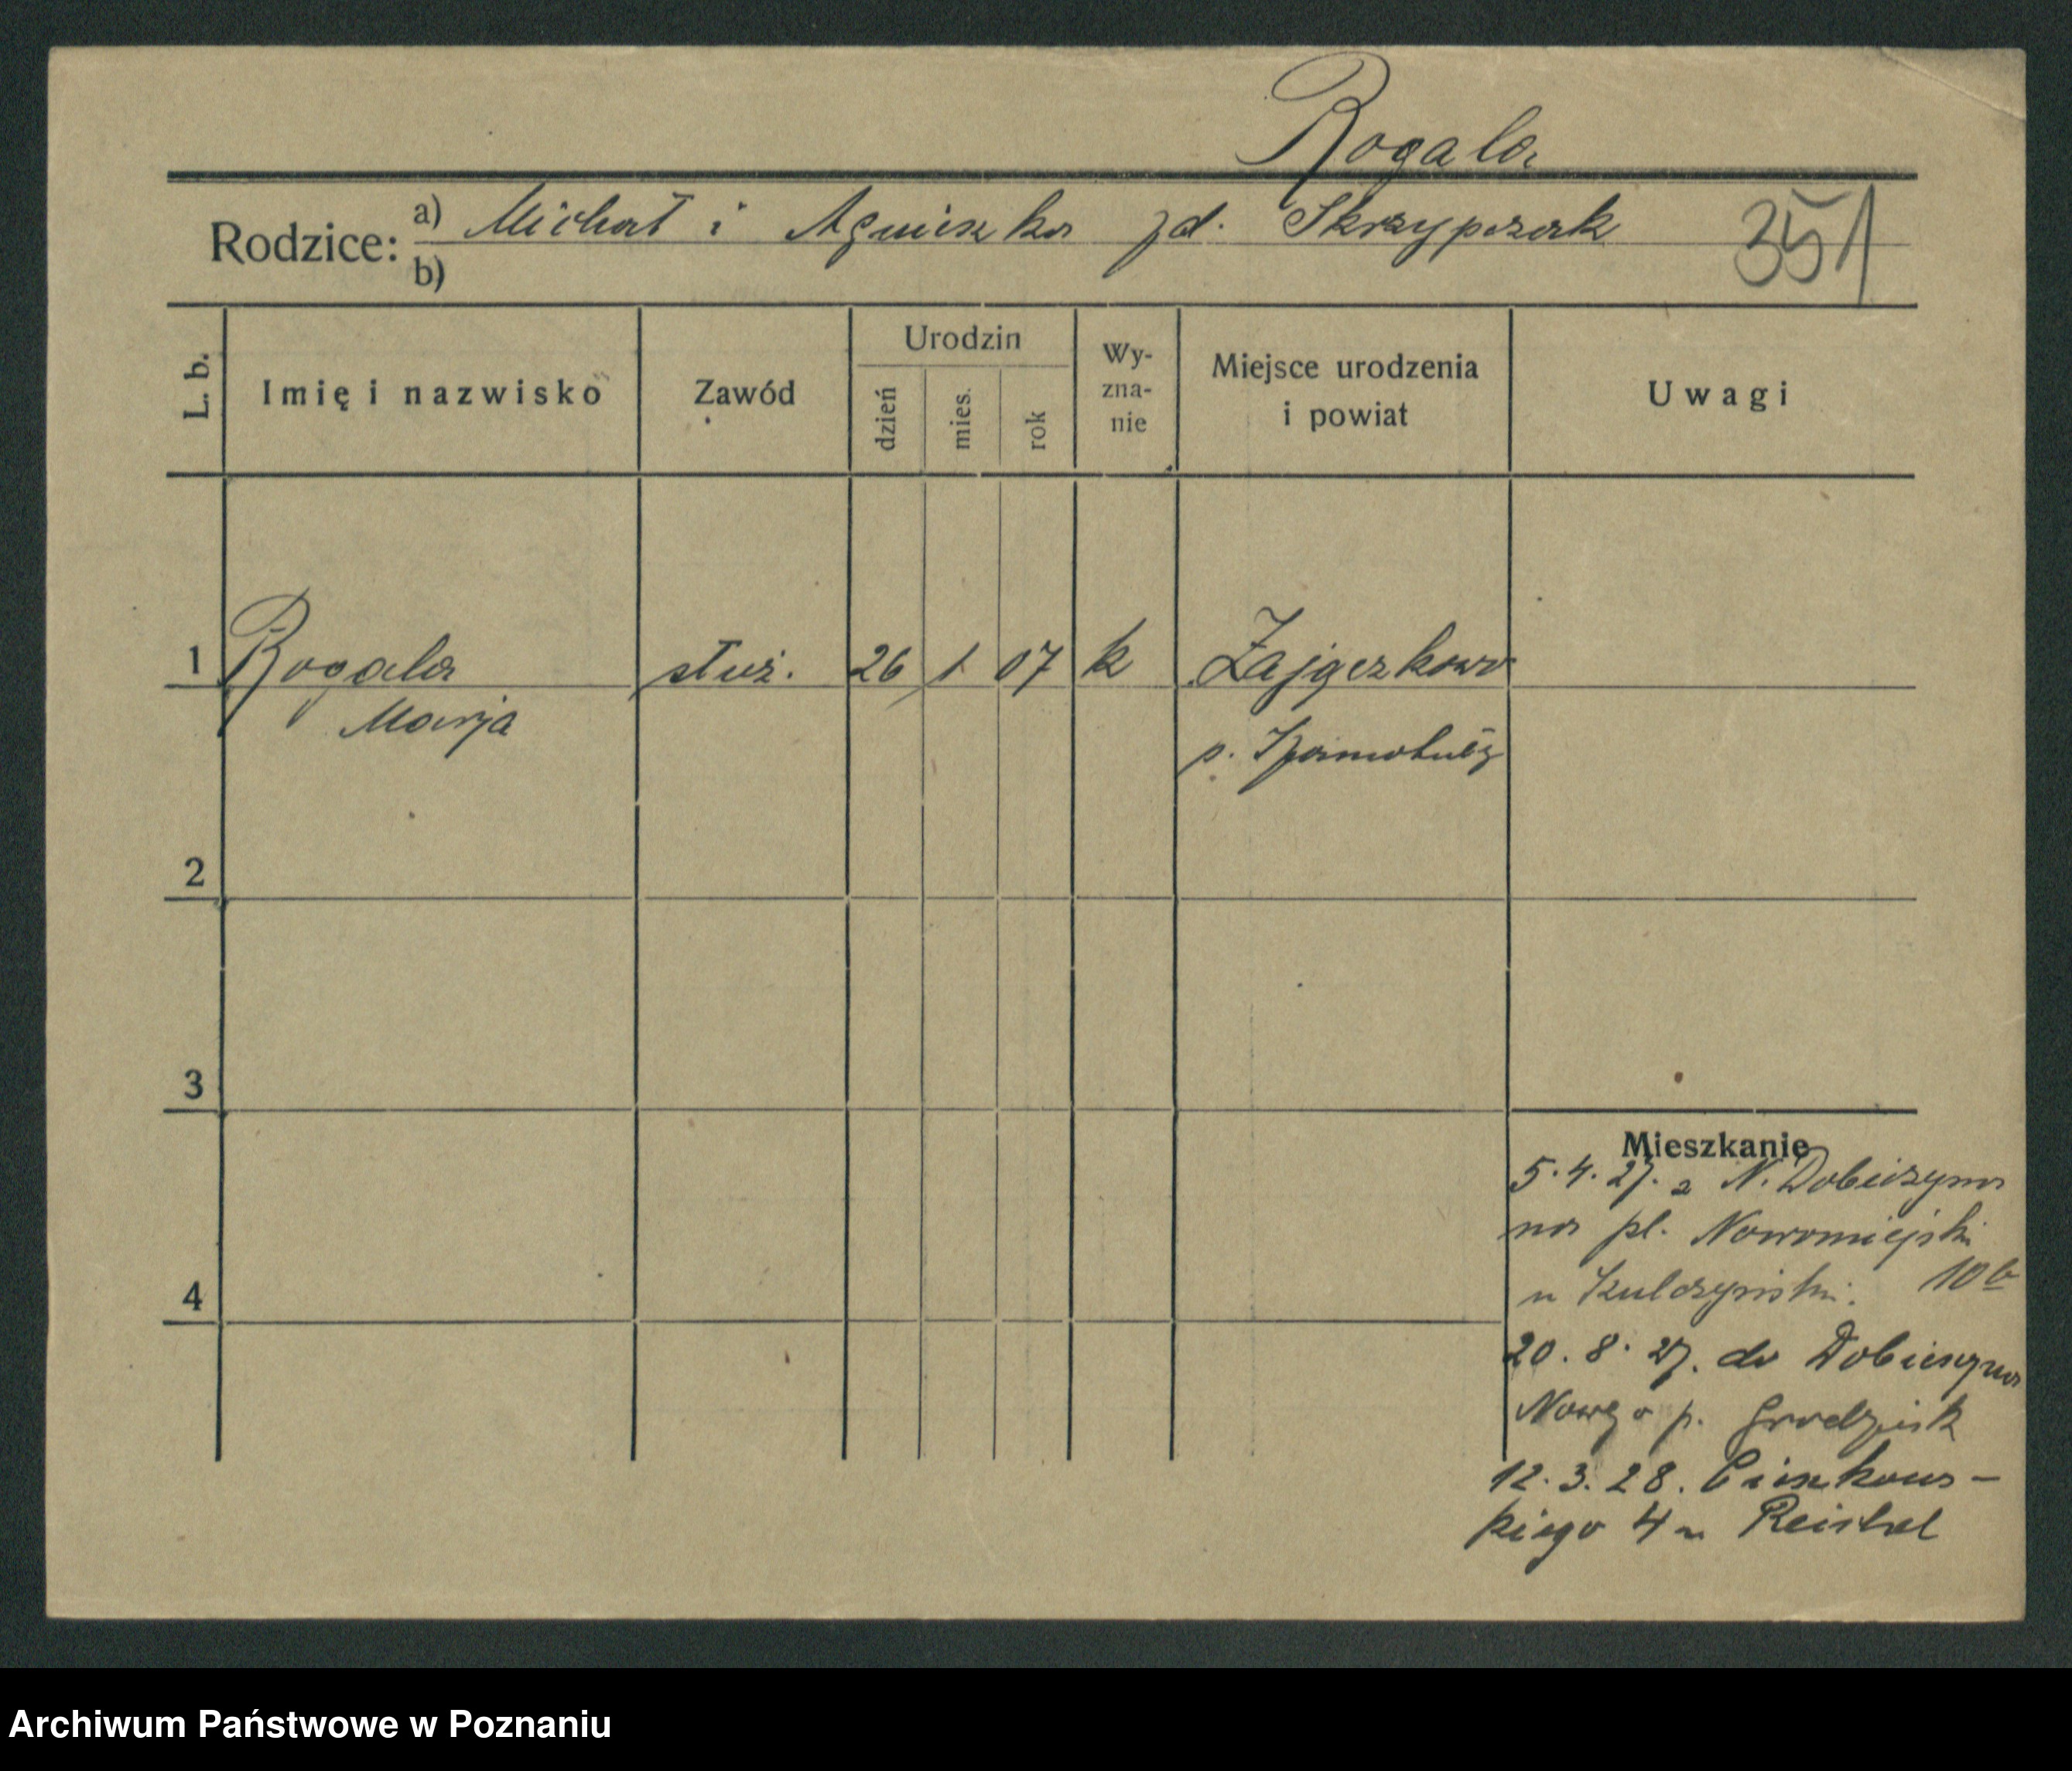 Rogala
Rodzice: a) Michał i Agnieszka zd. Skrzypczak 351
b)
L. b. Imię i nazwisko Zawód Urodzin dzień mies. rok Wyznanie Miejsce urodzenia i powiat Uwagi
1 Rogala służ. 26 1 07 k Zajączkowo
Marja p. Szamotuły
2
3
4
Mieszkanie
5.4.27. z N. Dobieżyna
na pl. Nowomiejski
u Kulczyński. 10b
20.8.27. do Dobieżyna
Nowego p. Grodzisk
12.3.28. Cieszkows-
kiego 4 u
Archiwum Państwowe w Poznaniu